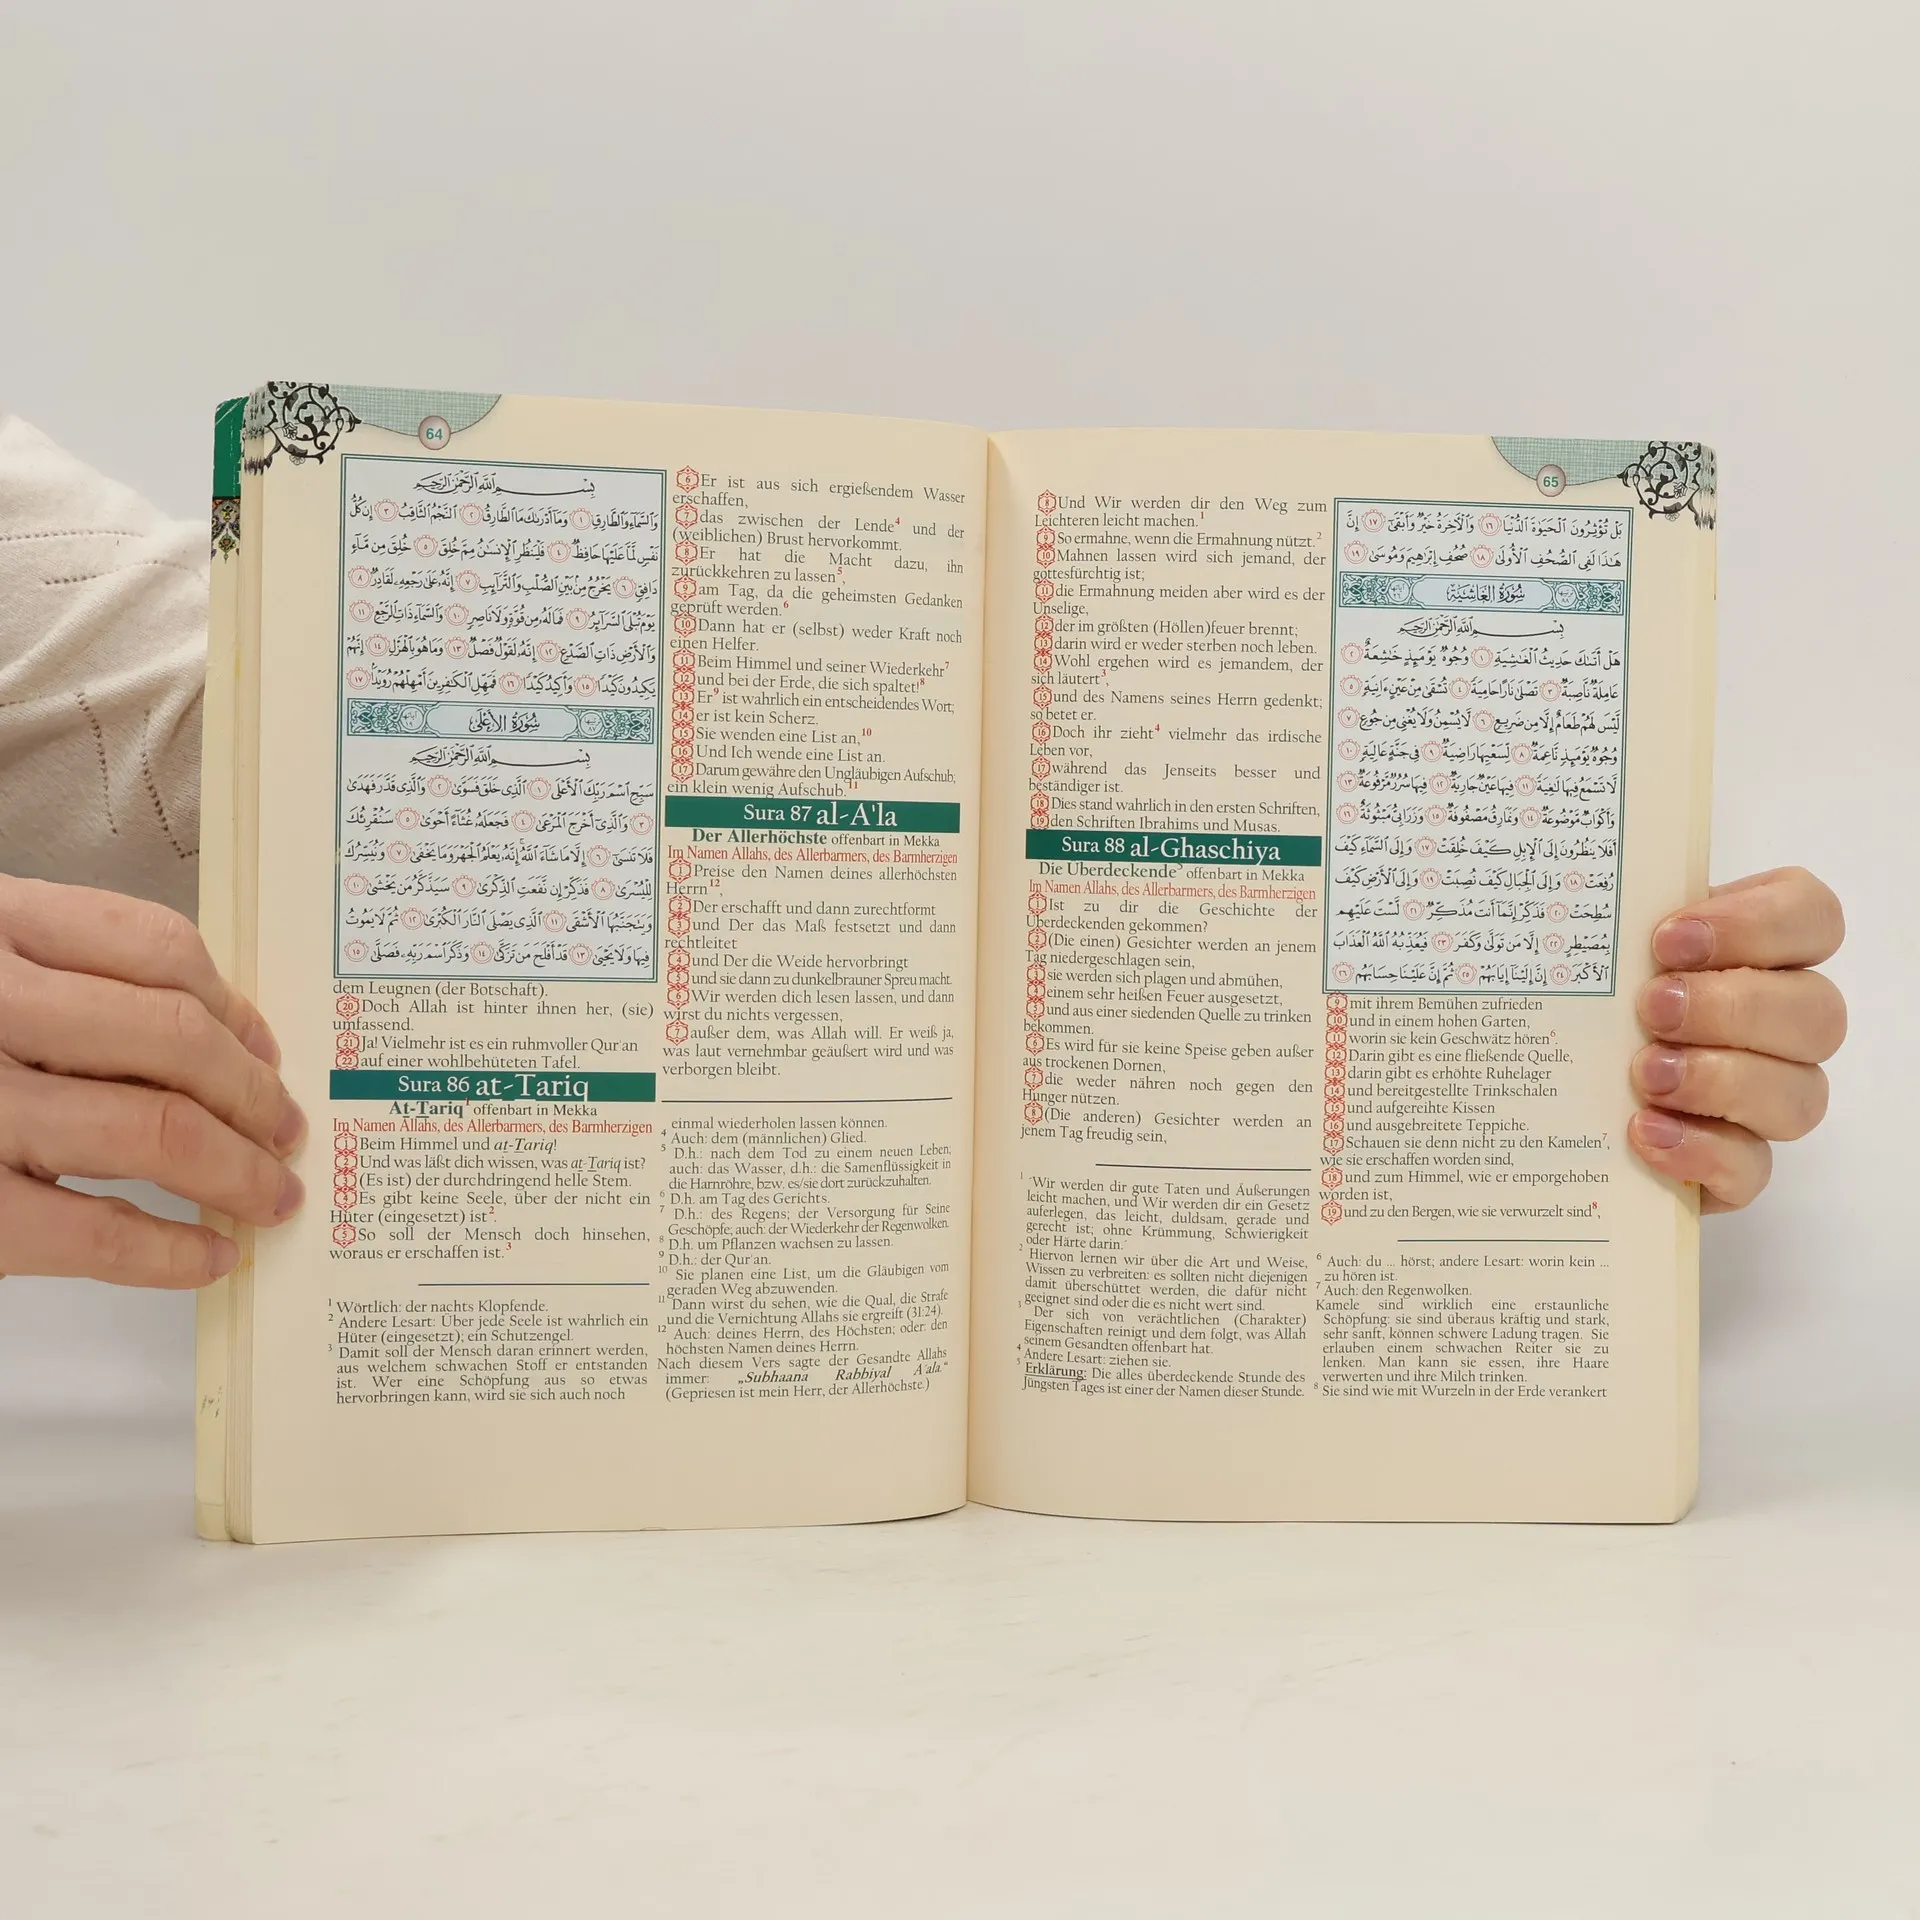 64
بِسْمِ ٱللَّهِ ٱلرَّحْمَٰنِ ٱلرَّحِيمِ
وَٱلسَّمَآءِ وَٱلطَّارِقِ ١ وَمَآ أَدْرَىٰكَ مَا ٱلطَّارِقُ ٢ ٱلنَّجْمُ ٱلثَّاقِبُ ٣ إِن كُلُّ
نَفْسٍ لَّمَّا عَلَيْهَا حَافِظٌ ٤ فَلْيَنظُرِ ٱلْإِنسَٰنُ مِمَّ خُلِقَ ٥ خُلِقَ مِن مَّآءٍ
دَافِقٍ ٦ يَخْرُجُ مِنۢ بَيْنِ ٱلصُّلْبِ وَٱلتَّرَآئِبِ ٧ إِنَّهُۥ عَلَىٰ رَجْعِهِۦ لَقَادِرٌ ٨
يَوْمَ تُبْلَى ٱلسَّرَآئِرُ ٩ فَمَا لَهُۥ مِن قُوَّةٍ وَلَا نَاصِرٍ ١٠ وَٱلسَّمَآءِ ذَاتِ ٱلرَّجْعِ ١١
وَٱلْأَرْضِ ذَاتِ ٱلصَّدْعِ ١٢ إِنَّهُۥ لَقَوْلٌ فَصْلٌ ١٣ وَمَا هُوَ بِٱلْهَزْلِ ١٤ إِنَّهُمْ
يَكِيدُونَ كَيْدًا ١٥ وَأَكِيدُ كَيْدًا ١٦ فَمَهِّلِ ٱلْكَٰفِرِينَ أَمْهِلْهُمْ رُوَيْدًۢا ١٧
سُورَةُ الأَعْلَىٰ
بِسْمِ ٱللَّهِ ٱلرَّحْمَٰنِ ٱلرَّحِيمِ
سَبِّحِ ٱسْمَ رَبِّكَ ٱلْأَعْلَى ١ ٱلَّذِى خَلَقَ فَسَوَّىٰ ٢ وَٱلَّذِى قَدَّرَ فَهَدَىٰ
٣ وَٱلَّذِىٓ أَخْرَجَ ٱلْمَرْعَىٰ ٤ فَجَعَلَهُۥ غُثَآءً أَحْوَىٰ ٥ سَنُقْرِئُكَ
فَلَا تَنسَىٰٓ ٦ إِلَّا مَا شَآءَ ٱللَّهُ إِنَّهُۥ يَعْلَمُ ٱلْجَهْرَ وَمَا يَخْفَىٰ ٧ وَنُيَسِّرُكَ
لِلْيُسْرَىٰ ٨ فَذَكِّرْ إِن نَّفَعَتِ ٱلذِّكْرَىٰ ٩ سَيَذَّكَّرُ مَن يَخْشَىٰ ١٠
وَيَتَجَنَّبُهَا ٱلْأَشْقَى ١١ ٱلَّذِى يَصْلَى ٱلنَّارَ ٱلْكُبْرَىٰ ١٢ ثُمَّ لَا يَمُوتُ
فِيهَا وَلَا يَحْيَىٰ ١٣ قَدْ أَفْلَحَ مَن تَزَكَّىٰ ١٤ وَذَكَرَ ٱسْمَ رَبِّهِۦ فَصَلَّىٰ ١٥
dem Leugnen (der Botschaft).
20 Doch Allah ist hinter ihnen her, (sie)
umfassend.
21 Ja! Vielmehr ist es ein ruhmvoller Qur'an
22 auf einer wohlbehüteten Tafel.
Sura 86 at-Tariq
At-Tariq1 offenbart in Mekka
Im Namen Allahs, des Allerbarmers, des Barmherzigen
1 Beim Himmel und at-Tariq!
2 Und was läßt dich wissen, was at-Tariq ist?
3 (Es ist) der durchdringend helle Stern.
4 Es gibt keine Seele, über der nicht ein
Hüter (eingesetzt) ist2.
5 So soll der Mensch doch hinsehen,
woraus er erschaffen ist.3
1 Wörtlich: der nachts Klopfende.
2 Andere Lesart: Über jede Seele ist wahrlich ein
Hüter (eingesetzt); ein Schutzengel.
3 Damit soll der Mensch daran erinnert werden,
aus welchem schwachen Stoff er entstanden
ist. Wer eine Schöpfung aus so etwas
hervorbringen kann, wird sie sich auch noch
6 Er ist aus sich ergießendem Wasser
erschaffen,
7 das zwischen der Lende4 und der
(weiblichen) Brust hervorkommt.
8 Er hat die Macht dazu, ihn
zurückkehren zu lassen5,
9 am Tag, da die geheimsten Gedanken
geprüft werden.6
10 Dann hat er (selbst) weder Kraft noch
einen Helfer.
11 Beim Himmel und seiner Wiederkehr7
12 und bei der Erde, die sich spaltet!8
13 Er9 ist wahrlich ein entscheidendes Wort;
14 er ist kein Scherz.
15 Sie wenden eine List an,10
16 Und Ich wende eine List an.
17 Darum gewähre den Ungläubigen Aufschub;
ein klein wenig Aufschub.11
Sura 87 al-A'la
Der Allerhöchste offenbart in Mekka
Im Namen Allahs, des Allerbarmers, des Barmherzigen
1 Preise den Namen deines allerhöchsten
Herrn12,
2 Der erschafft und dann zurechtformt
3 und Der das Maß festsetzt und dann
rechtleitet
4 und Der die Weide hervorbringt
5 und sie dann zu dunkelbrauner Spreu macht.
6 Wir werden dich lesen lassen, und dann
wirst du nichts vergessen,
7 außer dem, was Allah will. Er weiß ja,
was laut vernehmbar geäußert wird und was
verborgen bleibt.
einmal wiederholen lassen können.
4 Auch: dem (männlichen) Glied.
5 D.h.: nach dem Tod zu einem neuen Leben;
auch: das Wasser, d.h.: die Samenflüssigkeit in
die Harnröhre, bzw. es/sie dort zurückzuhalten.
6 D.h. am Tag des Gerichts.
7 D.h.: des Regens; der Versorgung für Seine
Geschöpfe; auch: der Wiederkehr der Regenwolken.
8 D.h. um Pflanzen wachsen zu lassen.
9 D.h.: der Qur'an.
10 Sie planen eine List, um die Gläubigen vom
geraden Weg abzuwenden.
11 Dann wirst du sehen, wie die Qual, die Strafe
und die Vernichtung Allahs sie ergreift (31:24).
12 Auch: deines Herrn, des Höchsten; oder: den
höchsten Namen deines Herrn.
Nach diesem Vers sagte der Gesandte Allahs
immer: „Subhaana Rabbiyal A'ala.“
(Gepriesen ist mein Herr, der Allerhöchste.)
65
8 Und Wir werden dir den Weg zum
Leichteren leicht machen.1
9 So ermahne, wenn die Ermahnung nützt.2
10 Mahnen lassen wird sich jemand, der
gottesfürchtig ist;
11 die Ermahnung meiden aber wird es der
Unselige,
12 der im größten (Höllen)feuer brennt;
13 darin wird er weder sterben noch leben.
14 Wohl ergehen wird es jemandem, der
sich läutert3,
15 und des Namens seines Herrn gedenkt;
so betet er.
16 Doch ihr zieht4 vielmehr das irdische
Leben vor,
17 während das Jenseits besser und
beständiger ist.
18 Dies stand wahrlich in den ersten Schriften,
19 den Schriften Ibrahims und Musas.
Sura 88 al-Ghaschiya
Die Überdeckende5 offenbart in Mekka
Im Namen Allahs, des Allerbarmers, des Barmherzigen
1 Ist zu dir die Geschichte der
Überdeckenden gekommen?
2 (Die einen) Gesichter werden an jenem
Tag niedergeschlagen sein,
3 sie werden sich plagen und abmühen,
4 einem sehr heißen Feuer ausgesetzt,
5 und aus einer siedenden Quelle zu trinken
bekommen.
6 Es wird für sie keine Speise geben außer
aus trockenen Dornen,
7 die weder nähren noch gegen den
Hunger nützen.
8 (Die anderen) Gesichter werden an
jenem Tag freudig sein,
1 Wir werden dir gute Taten und Äußerungen
leicht machen, und Wir werden dir ein Gesetz
auferlegen, das leicht, duldsam, gerade und
gerecht ist; ohne Krümmung, Schwierigkeit
oder Härte darin.
2 Hiervon lernen wir über die Art und Weise,
Wissen zu verbreiten: es sollten nicht diejenigen
damit überschüttet werden, die dafür nicht
geeignet sind oder die es nicht wert sind.
3 Der sich von verächtlichen (Charakter)
Eigenschaften reinigt und dem folgt, was Allah
seinem Gesandten offenbart hat.
4 Andere Lesart: ziehen sie.
5 Erklärung: Die alles überdeckende Stunde des
Jüngsten Tages ist einer der Namen dieser Stunde.
بَلْ تُؤْثِرُونَ ٱلْحَيَوٰةَ ٱلدُّنْيَا ١٦ وَٱلْأَخِرَةُ خَيْرٌ وَأَبْقَىٰٓ ١٧ إِنَّ
هَٰذَا لَفِى ٱلصُّحُفِ ٱلْأُولَىٰ ١٨ صُحُفِ إِبْرَٰهِيمَ وَمُوسَىٰ ١٩
سُورَةُ الغَاشِيَةِ
بِسْمِ ٱللَّهِ ٱلرَّحْمَٰنِ ٱلرَّحِيمِ
هَلْ أَتَىٰكَ حَدِيثُ ٱلْغَٰشِيَةِ ١ وُجُوهٌ يَوْمَئِذٍ خَٰشِعَةٌ ٢
عَامِلَةٌ نَّاصِبَةٌ ٣ تَصْلَىٰ نَارًا حَامِيَةً ٤ تُسْقَىٰ مِنْ عَيْنٍ ءَانِيَةٍ ٥
لَّيْسَ لَهُمْ طَعَامٌ إِلَّا مِن ضَرِيعٍ ٦ لَّا يُسْمِنُ وَلَا يُغْنِى مِن جُوعٍ ٧
وُجُوهٌ يَوْمَئِذٍ نَّاعِمَةٌ ٨ لِّسَعْيِهَا رَاضِيَةٌ ٩ فِى جَنَّةٍ عَالِيَةٍ ١٠
لَّا تَسْمَعُ فِيهَا لَٰغِيَةً ١١ فِيهَا عَيْنٌ جَارِيَةٌ ١٢ فِيهَا سُرُرٌ مَّرْفُوعَةٌ ١٣
وَأَكْوَابٌ مَّوْضُوعَةٌ ١٤ وَنَمَارِقُ مَصْفُوفَةٌ ١٥ وَزَرَابِىُّ مَبْثُوثَةٌ ١٦
أَفَلَا يَنظُرُونَ إِلَى ٱلْإِبِلِ كَيْفَ خُلِقَتْ ١٧ وَإِلَى ٱلسَّمَآءِ كَيْفَ
رُفِعَتْ ١٨ وَإِلَى ٱلْجِبَالِ كَيْفَ نُصِبَتْ ١٩ وَإِلَى ٱلْأَرْضِ كَيْفَ
سُطِحَتْ ٢٠ فَذَكِّرْ إِنَّمَآ أَنتَ مُذَكِّرٌ ٢١ لَّسْتَ عَلَيْهِم
بِمُصَيْطِرٍ ٢٢ إِلَّا مَن تَوَلَّىٰ وَكَفَرَ ٢٣ فَيُعَذِّبُهُ ٱللَّهُ ٱلْعَذَابَ
ٱلْأَكْبَرَ ٢٤ إِنَّ إِلَيْنَآ إِيَابَهُمْ ٢٥ ثُمَّ إِنَّ عَلَيْنَا حِسَابَهُم ٢٦
9 mit ihrem Bemühen zufrieden
10 und in einem hohen Garten,
11 worin sie kein Geschwätz hören6.
12 Darin gibt es eine fließende Quelle,
13 darin gibt es erhöhte Ruhelager
14 und bereitgestellte Trinkschalen
15 und aufgereihte Kissen
16 und ausgebreitete Teppiche.
17 Schauen sie denn nicht zu den Kamelen7,
wie sie erschaffen worden sind,
18 und zum Himmel, wie er emporgehoben
worden ist,
19 und zu den Bergen, wie sie verwurzelt sind8,
6 Auch: du ... hörst; andere Lesart: worin kein ...
zu hören ist.
7 Auch: den Regenwolken.
Kamele sind wirklich eine erstaunliche
Schöpfung: sie sind überaus kräftig und stark,
sehr sanft, können schwere Ladung tragen. Sie
erlauben einem schwachen Reiter sie zu
lenken. Man kann sie essen, ihre Haare
verwerten und ihre Milch trinken.
8 Sie sind wie mit Wurzeln in der Erde verankert